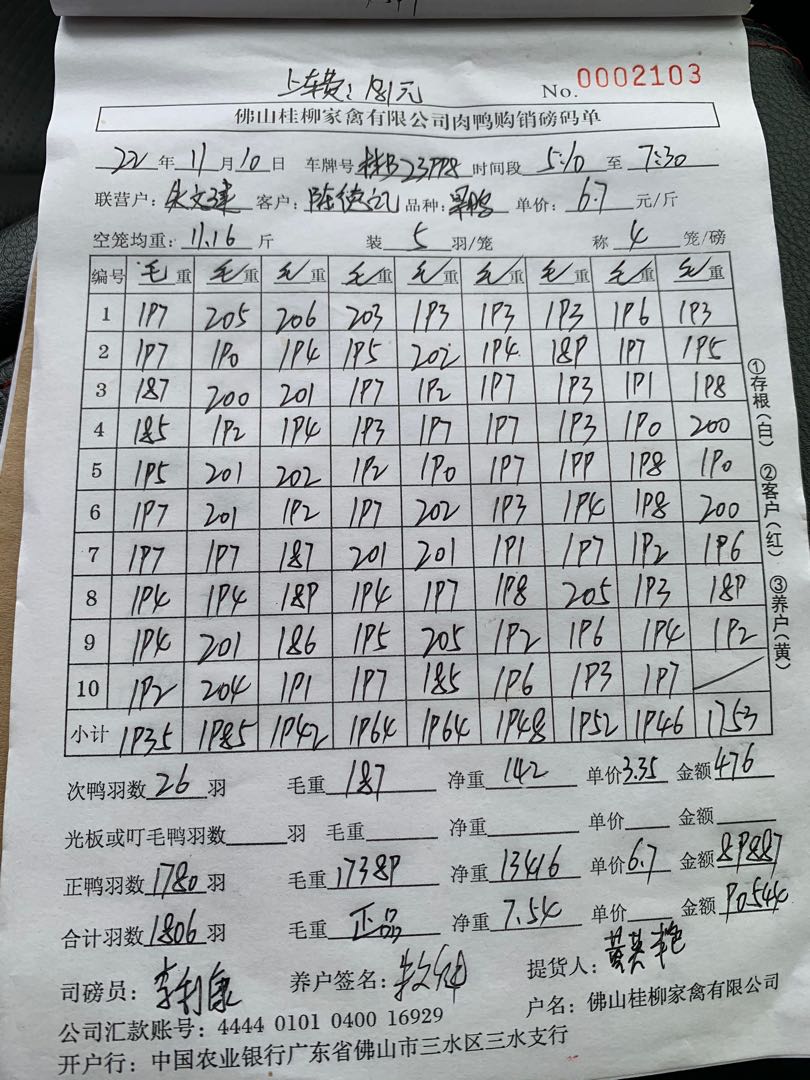 上车费：181元
No. 0002103
佛山桂柳家禽有限公司肉鸭购销磅码单
22 年 11 月 10 日 车牌号 桂B23998 时间段 5:10 至 7:30
联营户： 客户：陈德记 品种： 单价：6.7 元/斤
空笼均重：11.16 斤 装 5 羽/笼 称 4 笼/磅
编号 毛重 毛重 毛重 毛重 毛重 毛重 毛重 毛重 毛重
1 197 205 206 203 193 193 193 196 193
2 197 190 194 195 202 194 189 197 195
3 187 200 201 197 192 197 193 191 198
4 185 192 194 193 197 197 193 190 200
5 195 201 202 192 190 197 199 198 190
6 197 201 192 197 202 193 194 198 200
7 197 197 187 201 201 191 197 192 196
8 194 194 189 194 197 198 205 193 189
9 194 201 186 195 205 192 196 194 192
10 192 204 191 197 185 196 193 197
小计 1935 1985 1942 1964 1964 1948 1952 1946 1753
①存根（白） ②客户（红） ③养户（黄）
次鸭羽数 26 羽 毛重 187 净重 142 单价 3.35 金额 476
光板或叮毛鸭羽数 羽 毛重 净重 单价 金额
正鸭羽数 1780 羽 毛重 17389 净重 13416 单价 6.7 金额 89887
合计羽数 1806 羽 毛重 正品 净重 7.54 单价 金额 90544
司磅员：李利康 养户签名： 提货人：
公司汇款账号：4444 0101 0400 16929 户名：佛山桂柳家禽有限公司
开户行：中国农业银行广东省佛山市三水区三水支行